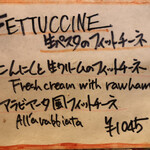 FETTUCCINE
生パスタのフィットチーネ
にんにくと生クリームのフィットチーネ
Fresh cream with raw ham
アラビアータ風フィットチーネ
All'avabbiata
¥1045